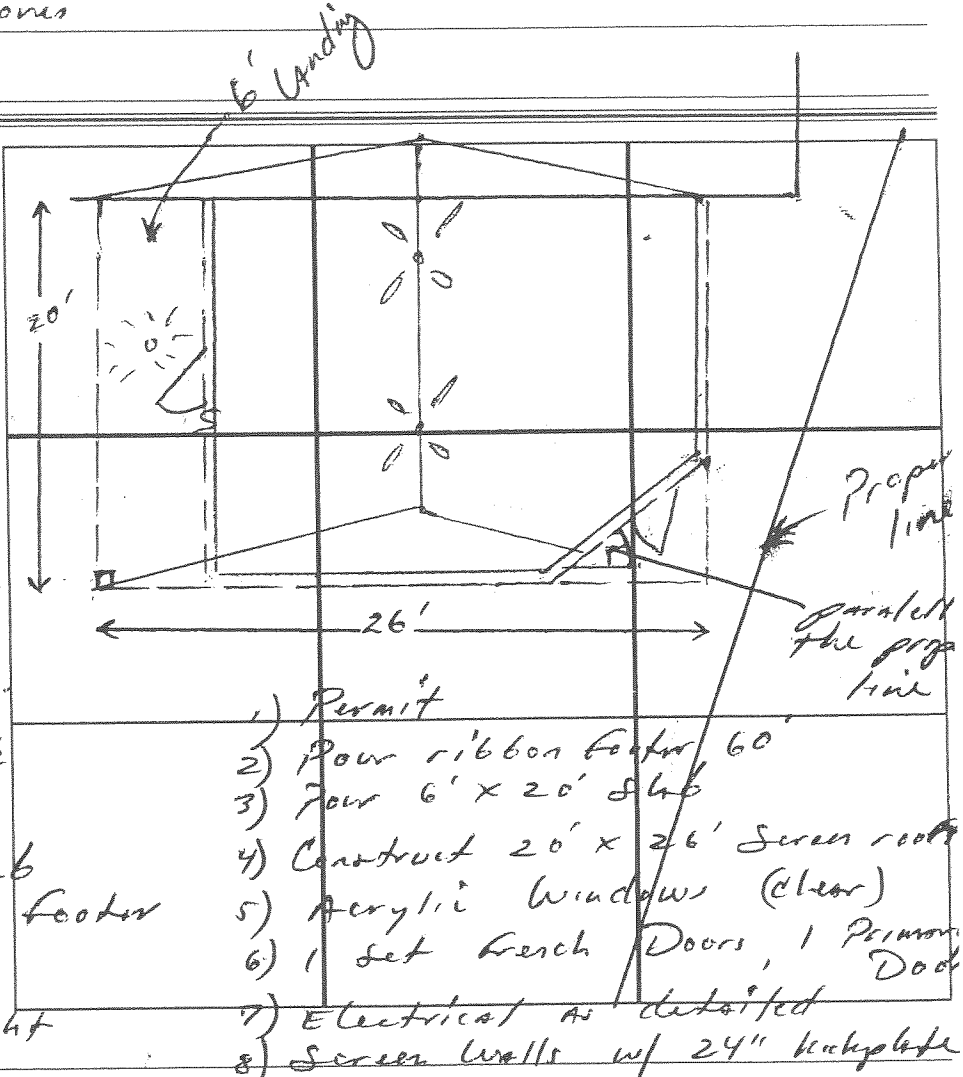 ones
6' Landing
20'
Proper
line
26'
paralell
the prop
line
1) Permit
2) Pour ribbon footer 60'
3) Pour 6' x 20' Slab
4) Construct 20' x 26' Screen room
b
footer
5) Acrylic Windows (clear)
6) 1 Set French Doors 1 Primary
Door
ht
7) Electrical As detailed
8) Screen Walls w/ 24" kickplate